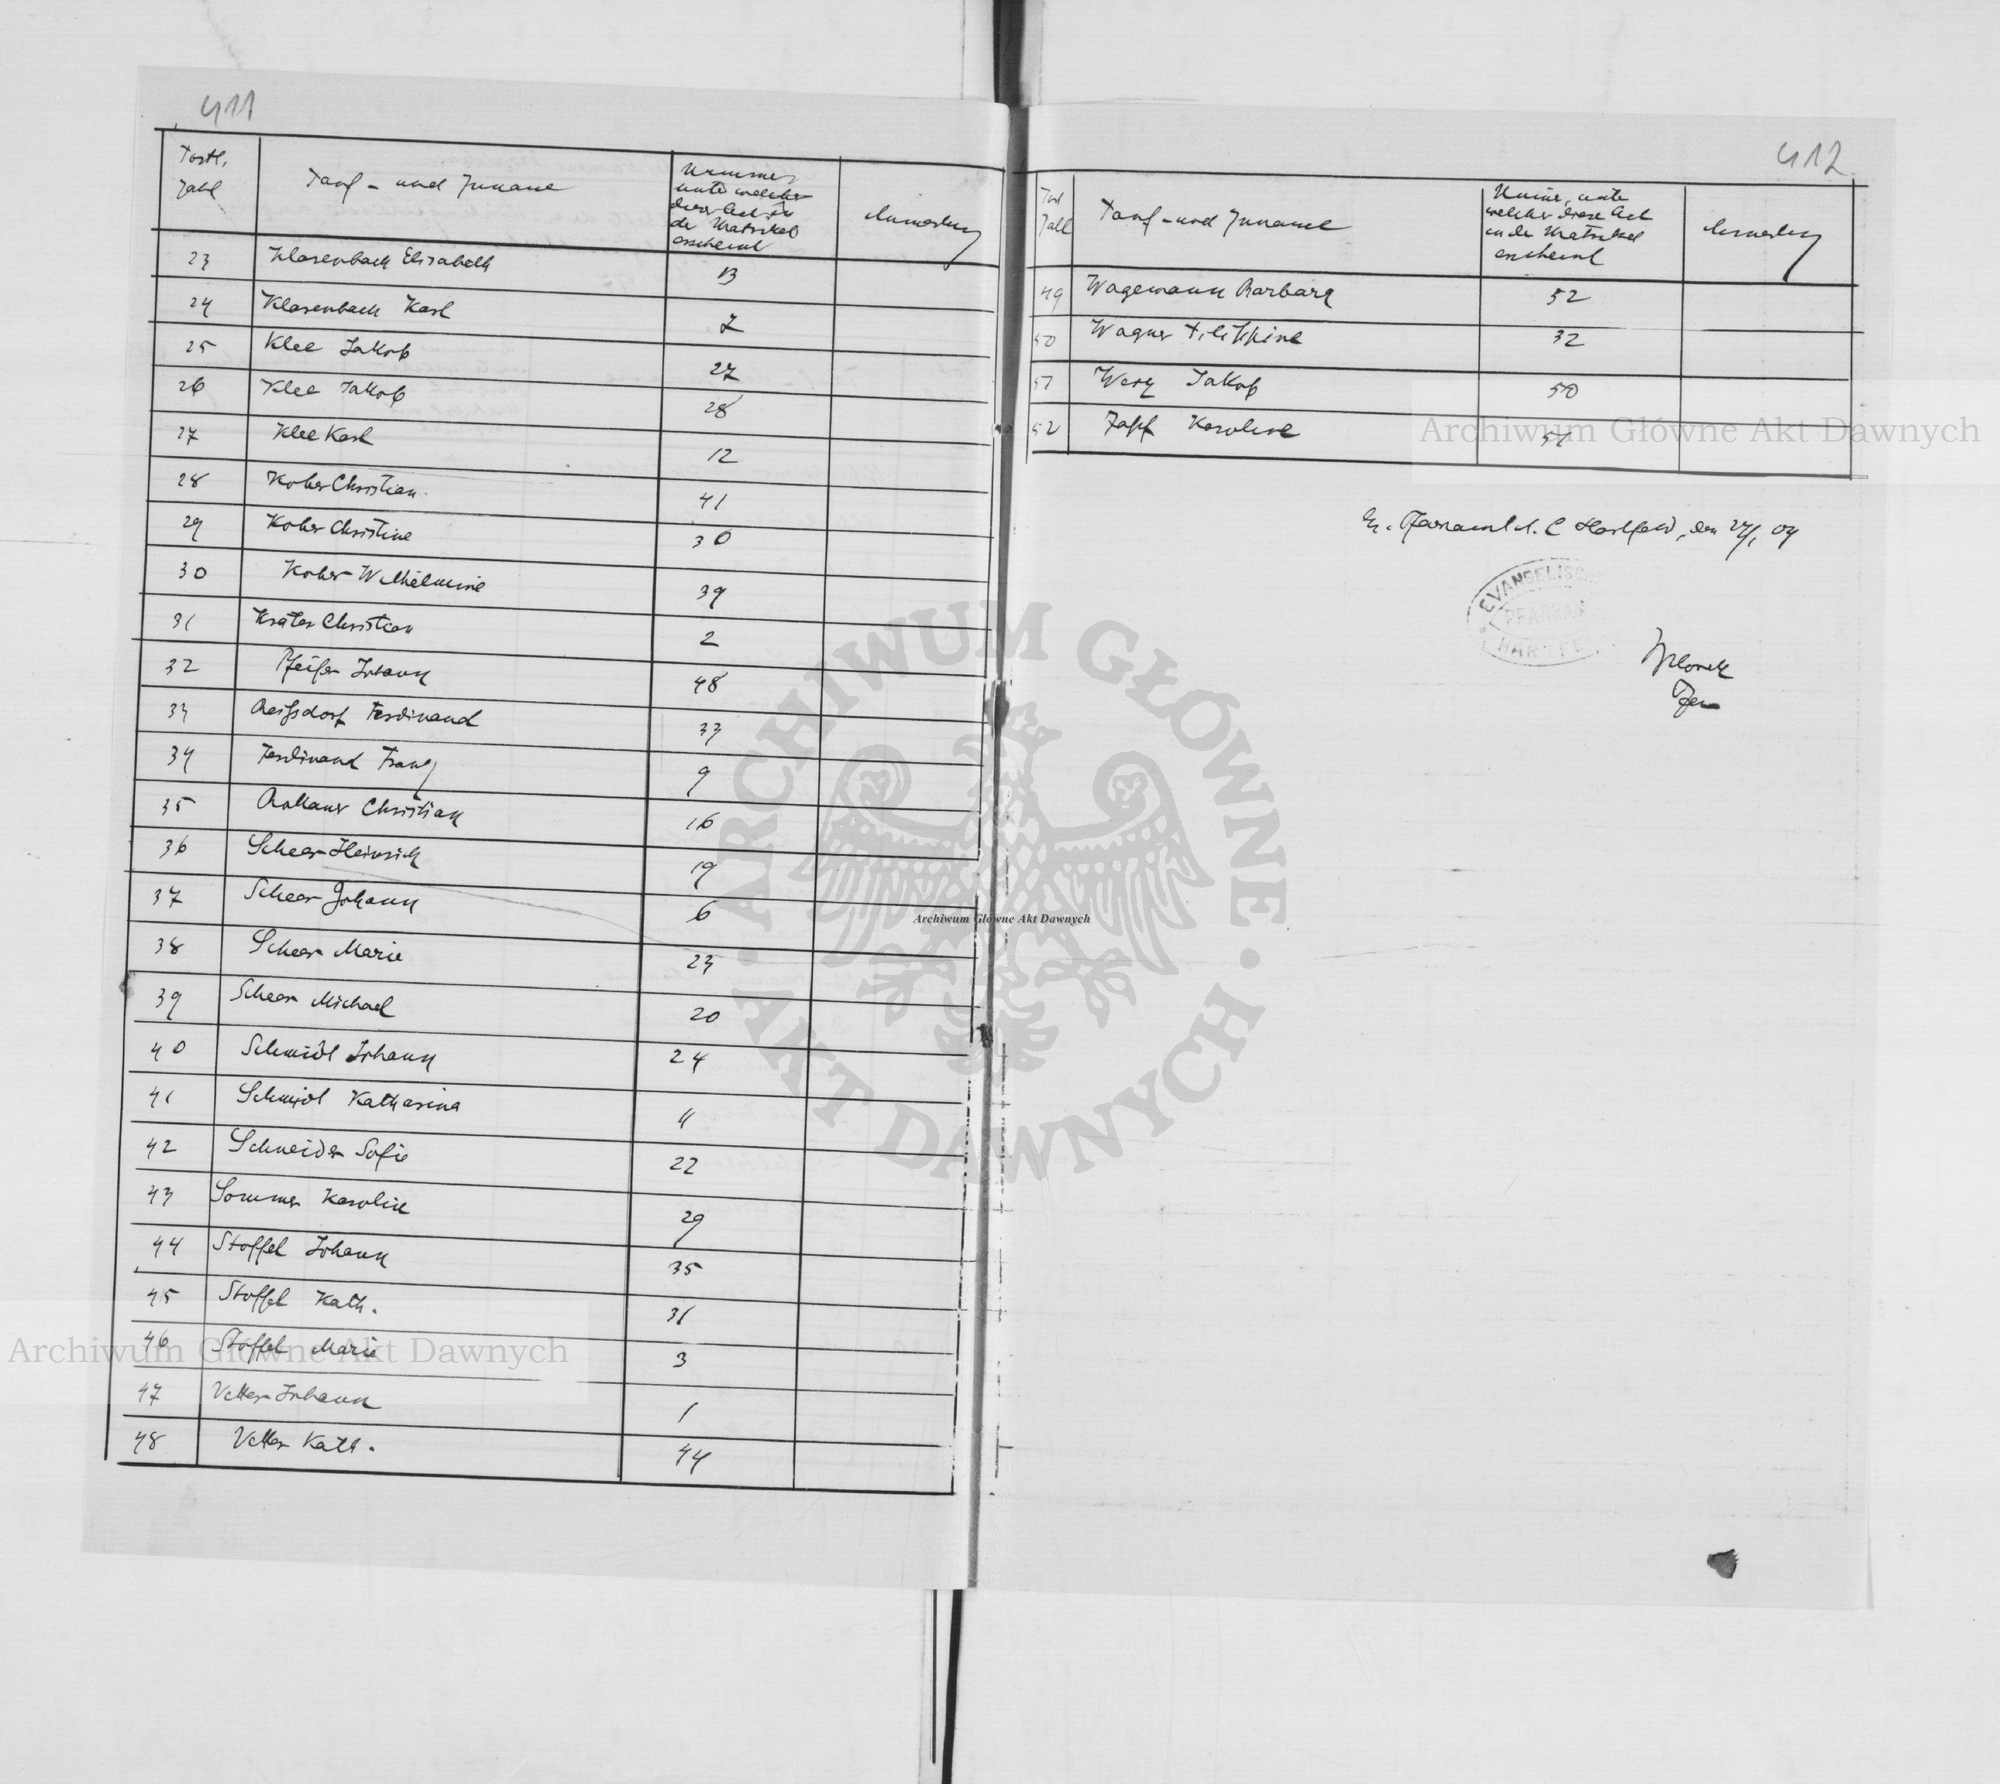 411
Fortl. Zahl
Tauf- und Zuname
Nummer unter welcher dieser Act in der Matrikel erscheint
Anmerkung
23 Klasenbach Elisabeth 13
24 Klasenbach Karl 7
25 Klee Jakob 27
26 Klee Jakob 28
27 Klee Karl 12
28 Koher Christian 41
29 Koher Christine 30
30 Koher Wilhelmine 39
31 Kräter Christian 2
32 Pfeifer Johann 48
33 Reifsdorf Ferdinand 33
34 Ferdinand Franz 9
35 Christian 16
36 Scheer Heinrich 19
37 Scheer Johann 6
38 Scheer Marie 23
39 Scheer Michael 20
40 Schmidt Johann 24
41 Schmidt Katharina
42 Schneider Sofie 22
43 Sommer Karoline 29
44 Stoffel Johann 35
45 Stoffel Kath. 31
46 Stoffel Marie 3
47 Vetter Johann 1
48 Vetter Kath. 44
412
Fortl. Zahl
Tauf- und Zuname
Numer, unter welcher dieser Act in der Matrikel erscheint
Anmerkung
49 Wagemann Barbara 52
50 Wagner Filippine 32
51 Jakob 50
52 Zapf Karoline 51
Ev. Pfarramt A. C Hartfeld, den
EVANGELISCH
PFARRAM
HARTFE
Archiwum Główne Akt Dawnych
ARCHIWUM GŁÓWNE · AKT DAWNYCH ·
Archiwum Główne Akt Dawnych
Archiwum Główne Akt Dawnych